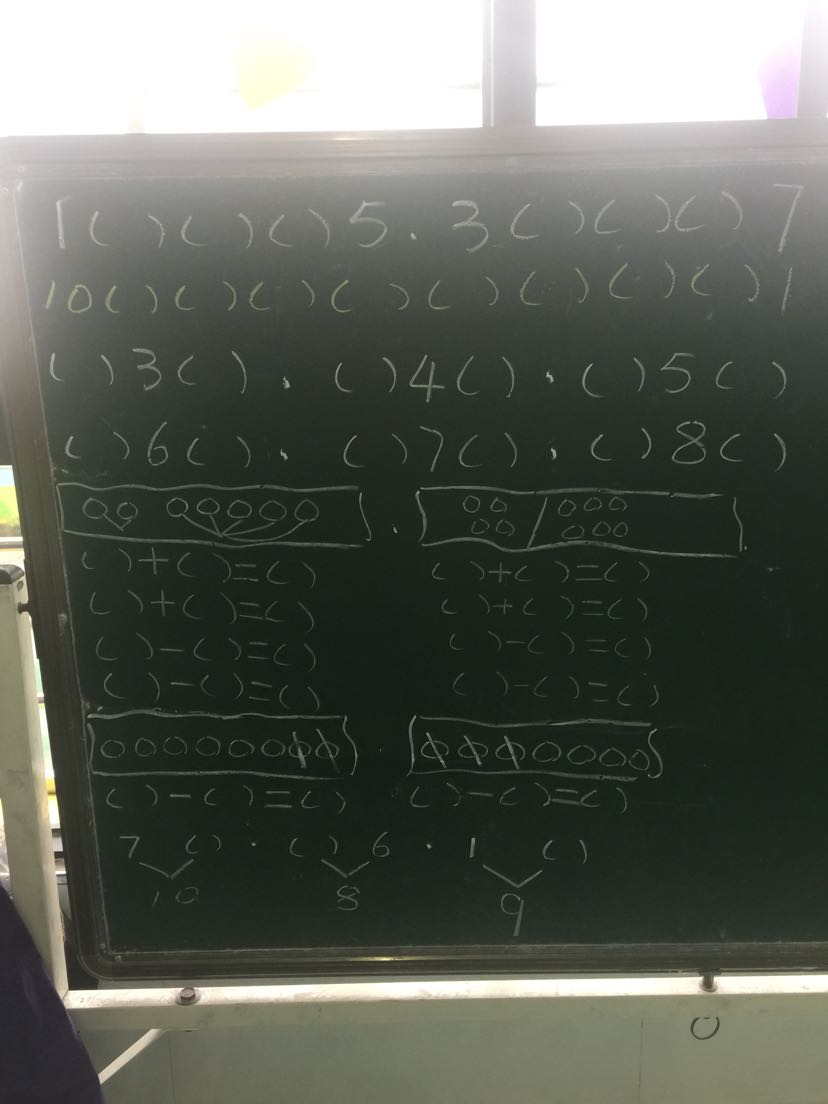 1( )( )( )5. 3( )( )( )7
10( )( )( )( )( )( )( )( )1
( )3( ). ( )4( ). ( )5( )
( )6( ). ( )7( ). ( )8( )
( )+( )=( ) ( )+( )=( )
( )+( )=( ) ( )+( )=( )
( )-( )=( ) ( )-( )=( )
( )-( )=( ) ( )-( )=( )
( )-( )=( ) ( )-( )=( )
7 ( ). ( ) 6. 1 ( )
10 8 9